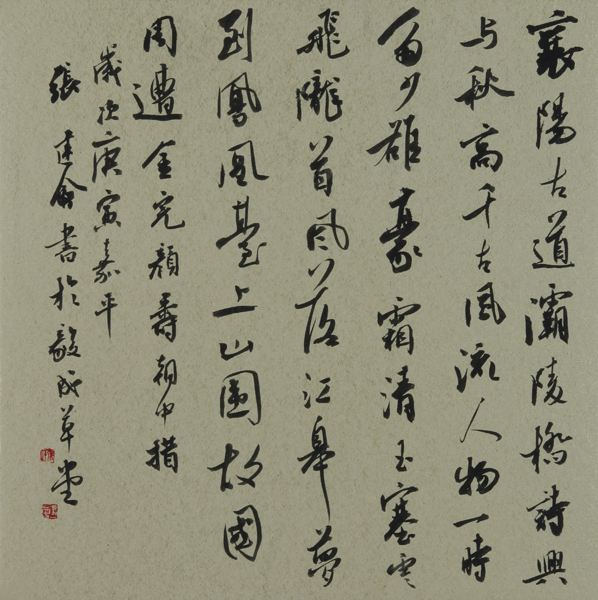 襄陽古道灞陵橋詩興
与秋高千古風流人物一時
多少雄豪霜清玉塞雲
飛隴首風落江皋夢
到鳳凰臺上山圍故國
周遭 金完顏壽朝中措
歲次庚寅嘉平
張建會書於成草堂